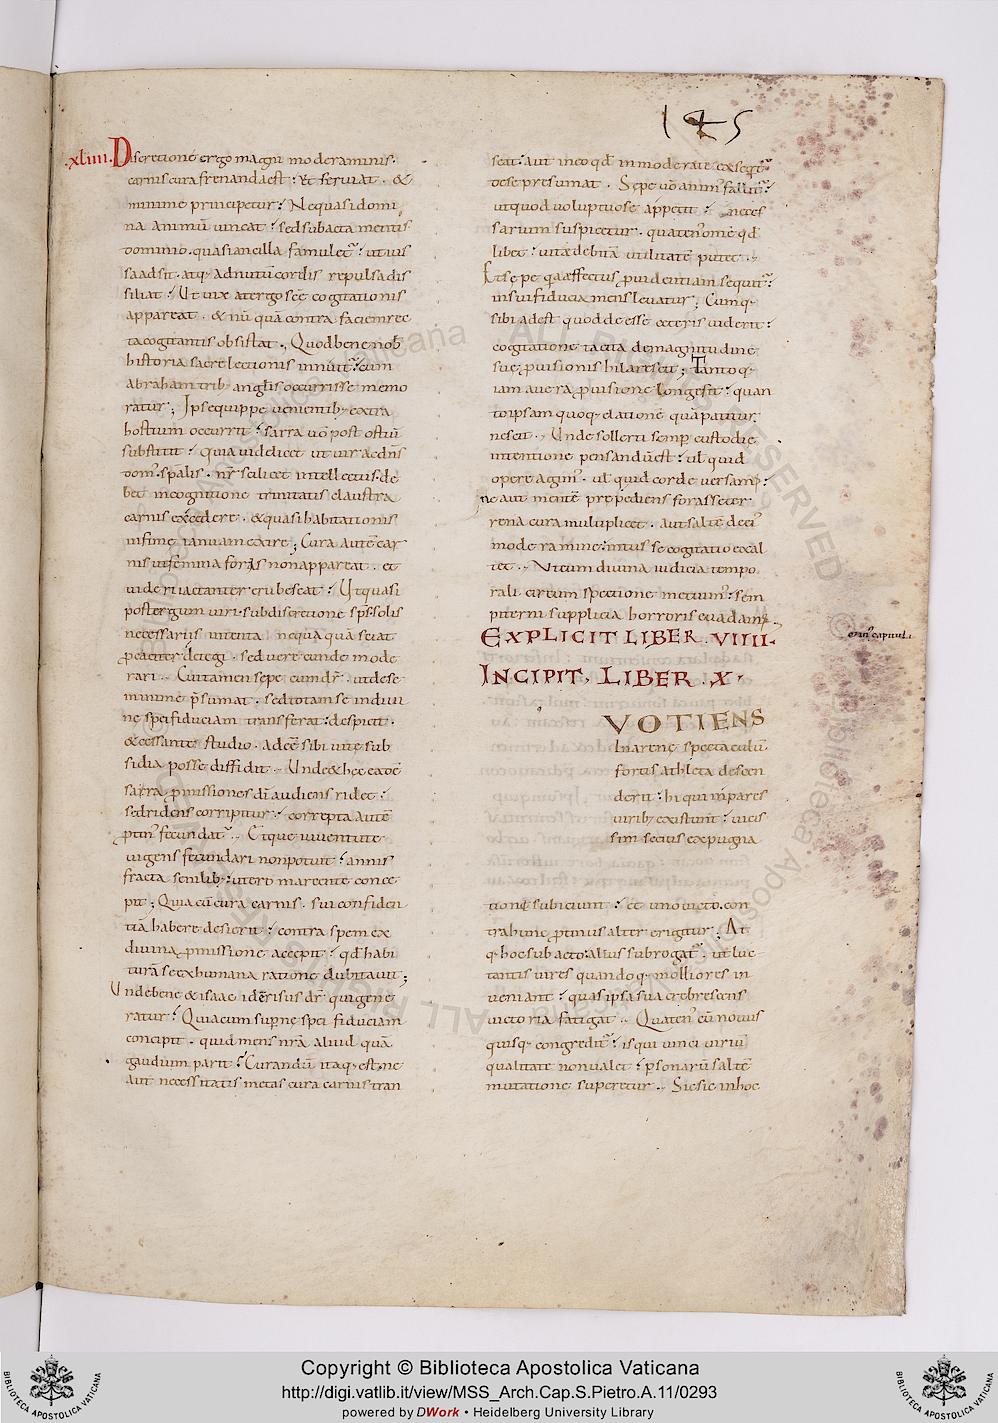 145
.xliiii. Discretione ergo magni moderaminis.
carnis cura frenanda est: Et serviat. &
minime principetur: Ne quasi domi
na animū vincat: sed subacta mentis
dominio. quasi ancilla famulet̃: ut ius
sa adsit. atq; ad nutū cordis repulsa dis
siliat: Ut vix a tergo sēe cogitationis
appareat. & nūquā contra faciem rec
ta cogitantis obsistat. Quod bene nob̄
historia sacre lectionis innuit: cum
Abraham trib; anglis occurrisse memo
ratur; Ipse quippe venientib; extra
hostium occurrit: sarra vō post ostiū
substitit: quia videlicet ut vir ac dn̄s
dom; sp̄alis. nr̄ scilicet intellectus. de
bet in cognitione trinitatis claustra
carnis excedere. & quasi habitationis
infime ianuam exire; Cura autē car
nis ut femina foras non appareat. et
videri iactanter erubescat: Ut quasi
post tergum viri. sub discretione sps̄: solis
necessariis intenta nequaquā sciat
p̄caciter detegi. sed verecunde mode
rari.. Cui tamen sepe cum dr̄. ut de se
minime p̄sumat. sed totam se in divi
ne spei fiduciam transferat: despicit.
& cessante studio. adee sibi vite sub
sidia posse diffidit.. Unde & hec eadē
sarra p̄missiones dī audiens ridet:
sed ridens corripitur: correpta autē
p̄tin; fecundat̃.. Et que iuventute
vigens fecundari non potuit: annis
fracta senilib;: utero marcente conce
pit; Quia cū cura carnis. sui confiden
tiā habere desierit: contra spem ex
divina p̄missione accepit: qd̄ habi
turā se ex humana ratione dubitavit;
Unde bene & isaac id ē risus dr̄ qui gene
ratur: Quia cum sup̄ne spei fiduciam
concipit. quid mens nr̄a aliud quā
gaudium parit: Curandū itaq; est. ne
aut necessitatis metas cura carnis tran
seat: aut in eo qd̄ in moderate exseqt̃
de se presumat. Sepe vō anim; fallit̃:
ut quod voluptuose appetit: neces
sarium suspicetur. quaten; ōme qd̄
libet: vitæ debitā utilitatē putet..
Et sepe qa affectus p̄videntiam sequit̃:
in sui fiducia mens levatur; Cumq;
sibi adest quod deesse ceteris viderit:
cogitatione tacita de magnitudine
sue p̄visionis hilarescit; Tanto q;
iam a vera p̄visione longe sit: quan
to ipsam quoq; elationē quā patitur
nescit.. Unde sollerti semp̄ custodie
intentione pensandū est: vl̄ quid
opere agim;. vl̄ quid corde versam;:
ne aut mentē prepediens foras seter
rena cura multiplicet. aut saltē de ei;
moderamine: intus se cogitatio extol
let.. Ut cum divina iudicia tempo
rali circumspectione metuim;: sem
piterni supplicia horroris evadam;.
EXPLICIT LIBER. VIIII.
INCIPIT. LIBER. X.
VOTIENS
In arene spectaculū.
fortis athleta descen
derit: hi qui inpares
virib; existunt: vicis
sim se eius expugna
tioni subiciunt: et uno victo. con
tra hunc p̄tinus alter erigitur; At
q; hoc subacto: alius subrogat̃. ut luc
tantis vires quandoq; molliores in
veniant: quas ipsa sua crebrescens
victoria fatigat.. Quaten; cū novus
quisq; congredit̃: is qui vinci viriū
qualitate non valet: p̄sonarū saltē
mutatione superetur.. Sic sic in hoc
Copyright © Biblioteca Apostolica Vaticana
http://digi.vatlib.it/view/MSS_Arch.Cap.S.Pietro.A.11/0293
powered by DWork • Heidelberg University Library
BIBLIOTECA APOSTOLICA VATICANA
BIBLIOTECA APOSTOLICA VATICANA